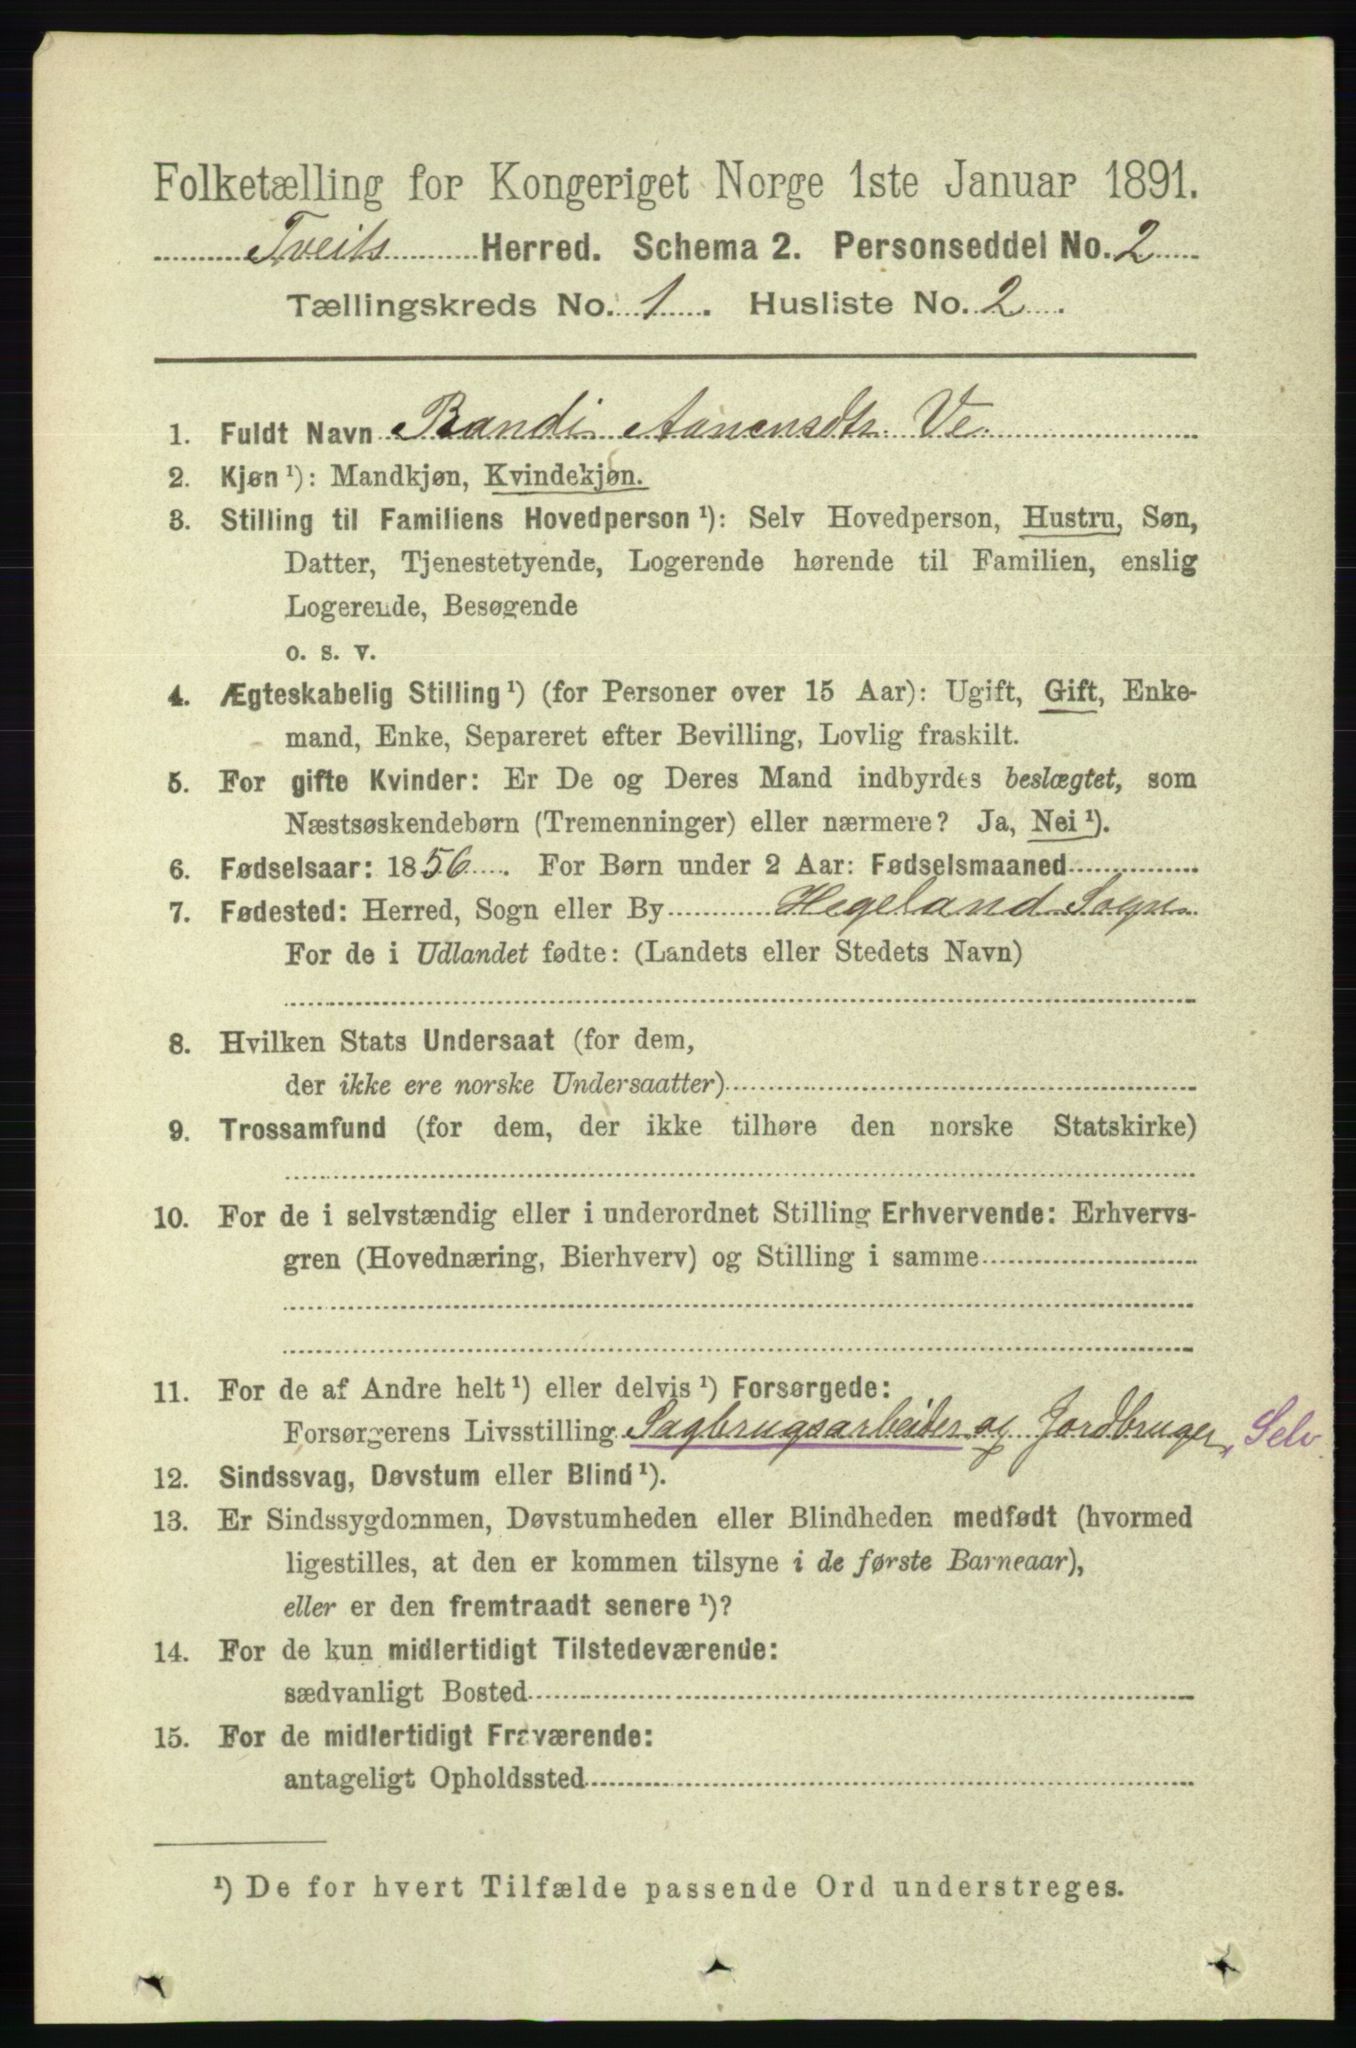 Folketælling for Kongeriget Norge 1ste Januar 1891.
Tveits Herred. Schema 2. Personseddel No. 2
Tællingskreds No. 1. Husliste No. 2.
1. Fuldt Navn Randi Aanensdtr. Ve.
2. Kjøn ¹): Mandkjøn, Kvindekjøn.
3. Stilling til Familiens Hovedperson ¹): Selv Hovedperson, Hustru, Søn,
Datter, Tjenestetyende, Logerende hørende til Familien, enslig
Logerende, Besøgende
o. s. v.
4. Ægteskabelig Stilling ¹) (for Personer over 15 Aar): Ugift, Gift, Enke-
mand, Enke, Separeret efter Bevilling, Lovlig fraskilt.
5. For gifte Kvinder: Er De og Deres Mand indbyrdes beslægtet, som
Næstsøskendebørn (Tremenninger) eller nærmere? Ja, Nei ¹).
6. Fødselsaar: 1856. For Børn under 2 Aar: Fødselsmaaned
7. Fødested: Herred, Sogn eller By Hegeland Sogn
For de i Udlandet fødte: (Landets eller Stedets Navn)
8. Hvilken Stats Undersaat (for dem,
der ikke ere norske Undersaatter)
9. Trossamfund (for dem, der ikke tilhøre den norske Statskirke)
10. For de i selvstændig eller i underordnet Stilling Erhvervende: Erhvervs-
gren (Hovednæring, Bierhverv) og Stilling i samme
11. For de af Andre helt ¹) eller delvis ¹) Forsørgede:
Forsørgerens Livsstilling Sagbrugsarbeider og Jordbruger, Selv
12. Sindssvag, Døvstum eller Blind ¹).
13. Er Sindssygdommen, Døvstumheden eller Blindheden medfødt (hvormed
ligestilles, at den er kommen tilsyne i de første Barneaar),
eller er den fremtraadt senere ¹)?
14. For de kun midlertidigt Tilstedeværende:
sædvanligt Bosted
15. For de midlertidigt Fraværende:
antageligt Opholdssted
¹) De for hvert Tilfælde passende Ord understreges.